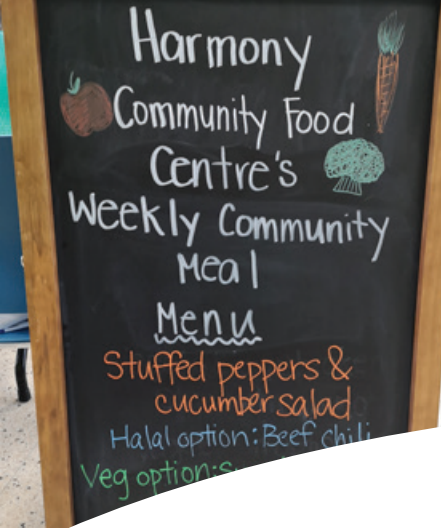 Harmony
Community Food
Centre's
Weekly Community
Meal
Menu
Stuffed peppers &
cucumber salad
Halal option: Beef chili
Veg option: